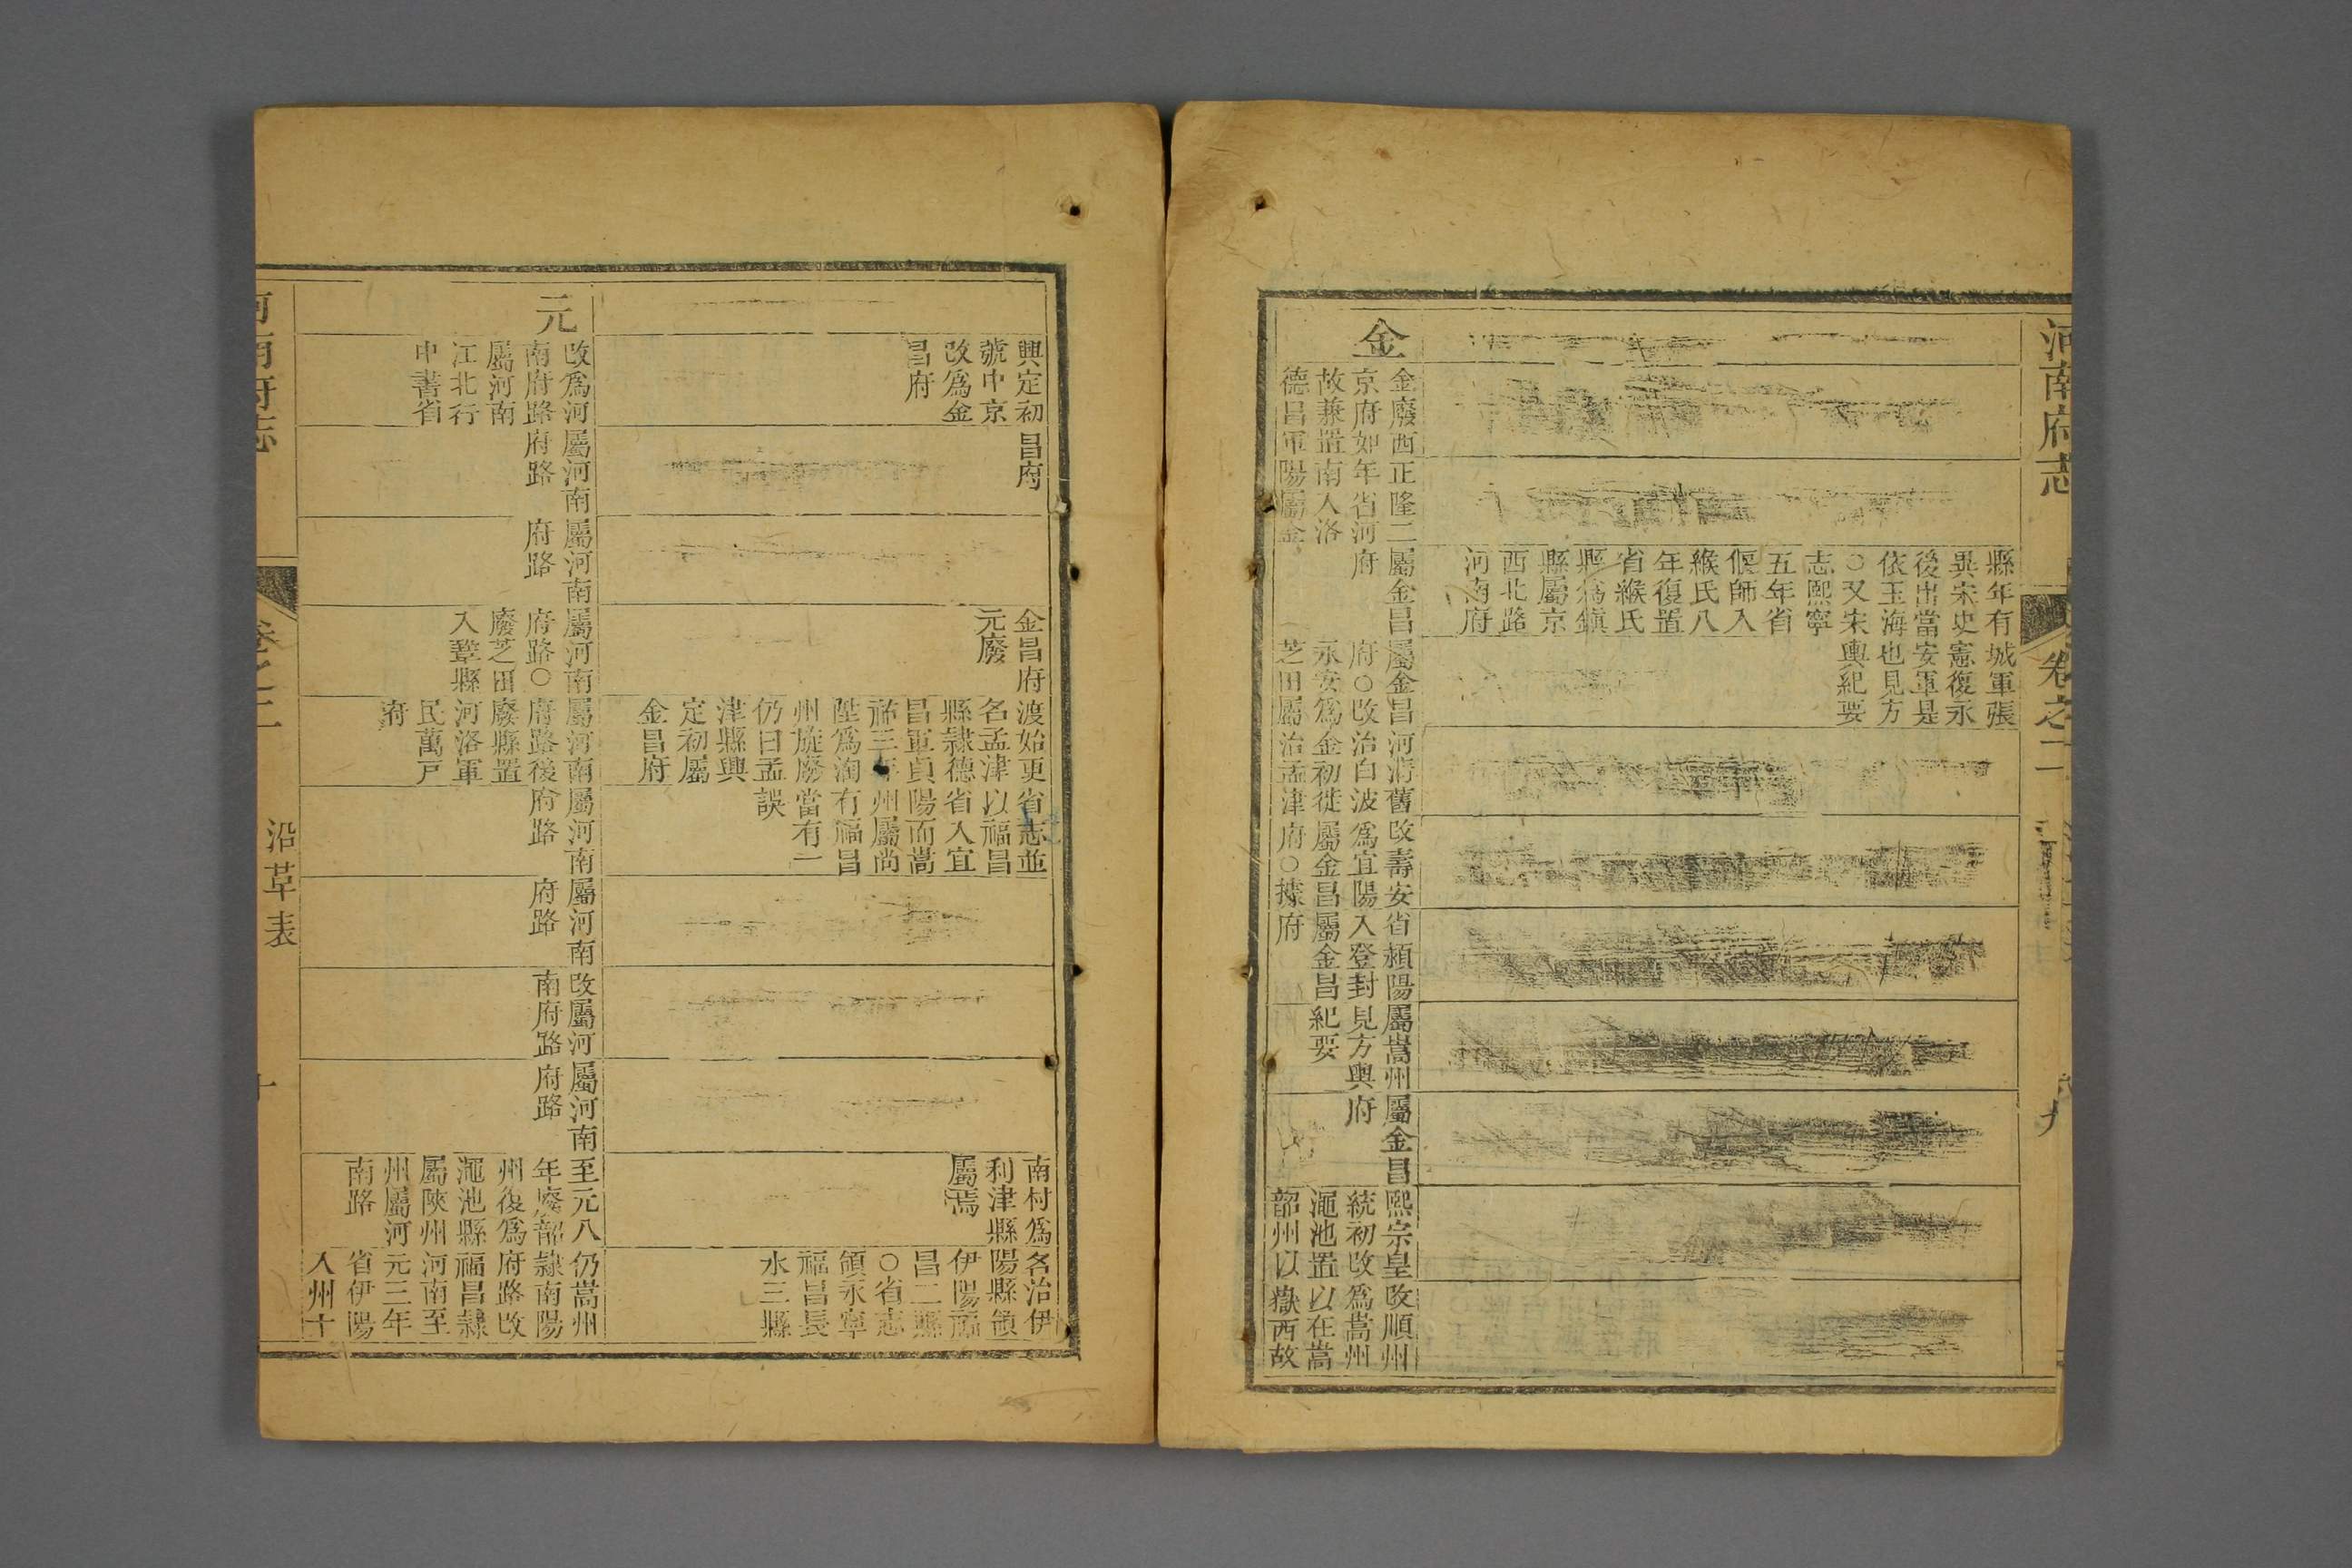 河南府志
卷之二
九
縣年有
異宋史
後出當
依玉海
○又宋
志熙寧
五年省
偃師入
緱氏八
年復置
省緱氏
縣為鎮
縣屬京
西北路
河南府
城軍張
憲復永
安軍是
也見方
輿紀要
金
金廢西
京府如
故兼置
德昌軍
正隆二
年省河
南入洛
陽屬金
屬金昌
府
屬金昌
府○改
永安為
芝田屬
河淸舊
治白波
金初徙
治孟津
改壽安
為宜陽
屬金昌
府○據
省潁陽
入登封
屬金昌
府
屬嵩州
見方輿
紀要
屬金昌
府
熙宗皇
統初改
澠池置
韶州以
改順州
為嵩州
以在嵩
嶽西故
興定初
號中京
改為金
昌府
昌府
金昌府
元廢
渡始更
名孟津
縣隸德
昌軍貞
祐三年
陞為陶
州旋廢
仍曰孟
津縣興
定初屬
金昌府
省志並
以福昌
省入宜
陽而嵩
州屬尚
有福昌
當有一
誤
南村為
利津縣
屬焉
名治伊
陽縣領
伊陽福
昌二縣
○省志
領永寧
福昌長
水三縣
元
改為河
南府路
屬河南
江北行
中書省
屬河南
府路
屬河南
府路
屬河南
府路○
廢芝田
入鞏縣
屬河南
府路後
廢縣置
河洛軍
民萬戶
府
屬河南
府路
屬河南
府路
改屬河
南府路
屬河南
府路
至元八
年廢韶
州復為
澠池縣
屬陝州
州屬河
南路
仍嵩州
隸南陽
府路改
福昌隸
河南至
元三年
省伊陽
入州十
河南府志
卷之二
沿革表
十